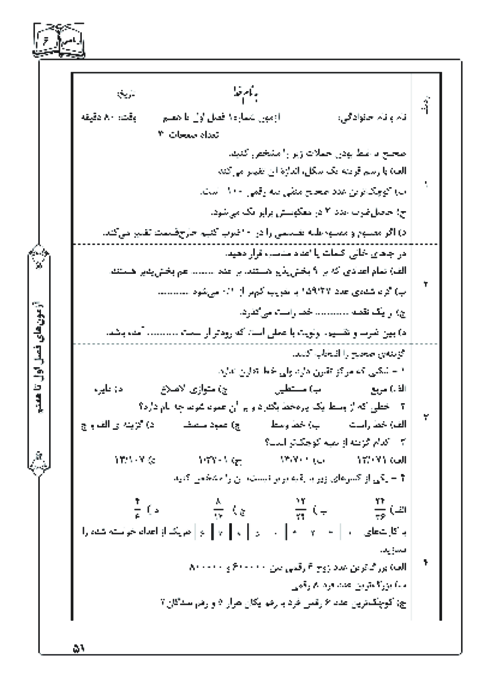 ریاضی ۶
به نام خدا
تاریخ:
ردیف
نام و نام خانوادگی: آزمون شماره ۱ فصل اول تا هفتم وقت: ۸۰ دقیقه
تعداد صفحات: ۳
صحیح یا غلط بودن جملات زیر را مشخص کنید.
الف) با رسم قرینه یک شکل، اندازه آن تغییر می‌کند.
۱
ب) کوچک‌ترین عدد صحیح منفی سه رقمی ۱۰۰- است.
ج) حاصل‌ضرب عدد ۲ در معکوسش برابر یک می‌شود.
د) اگر مقسوم و مقسوم‌علیه تقسیمی را در ۱۰ ضرب کنیم خارج‌قسمت تغییر می‌کند.
در جاهای خالی کلمات یا اعداد مناسب قرار دهید.
الف) تمام اعدادی که بر ۹ بخش‌پذیر هستند، بر عدد ........ هم بخش‌پذیر هستند.
۲
ب) گرد شده‌ی عدد ۱۵۹/۲۷ با تقریب کم‌تر از ۰/۱ می‌شود ..........
ج) از یک نقطه .......... خط راست می‌گذرد.
د) بین ضرب و تقسیم، اولویت با عملی است که زودتر از سمت .......... آمده باشد.
گزینه‌ی صحیح را انتخاب کنید.
۱ – شکلی که مرکز تقارن دارد ولی خط تقارن ندارد.
الف) مربع ب) مستطیل ج) متوازی الاضلاع د) دایره
۲ – خطی که از وسط یک پاره‌خط بگذرد و بر آن عمود شود، چه نام دارد؟
۳
الف) خط راست ب) خط وسط ج) عمود منصف د) گزینه ی الف و ج
۳ – کدام گزینه از بقیه کوچک‌تر است؟
الف) ۱۳/۰۷۱ ب) ۱۳/۷۰۱ ج) د) ۱۳/۱۰۷
۴ – یکی از کسرهای زیر با بقیه برابر نیست، آن را مشخص کنید.
الف) ۲۴/۳۶ ب) ۱۲/۲۴ ج) ۸/۱۲ د) ۴/۶
با کارت‌های هریک از اعداد خواسته شده را
بسازید.
۴
الف) بزرگ‌ترین عدد زوج ۶ رقمی بین ۶۰۰۰۰۰ و ۸۰۰۰۰۰
ب) بزرگ‌ترین عدد فرد ۸ رقمی
ج) کوچک‌ترین عدد ۶ رقمی فرد با رقم یکان هزار ۵ و رقم صدگان ۲
آزمون‌های فصل اول تا هفتم
۵۱